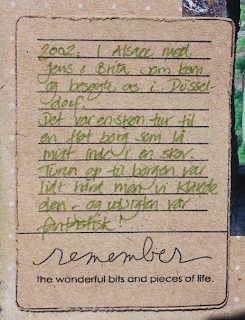 2002. I Alsace med
Jens & Brita som kom
og besøgte os i Düssel-
dorf.
Det var en skøn tur til
en flot borg som lå
midt inde i en skov.
Turen op til borgen var
lidt hård men vi klarede
den - og udsigten var
fantastisk!
remember
the wonderful bits and pieces of life.